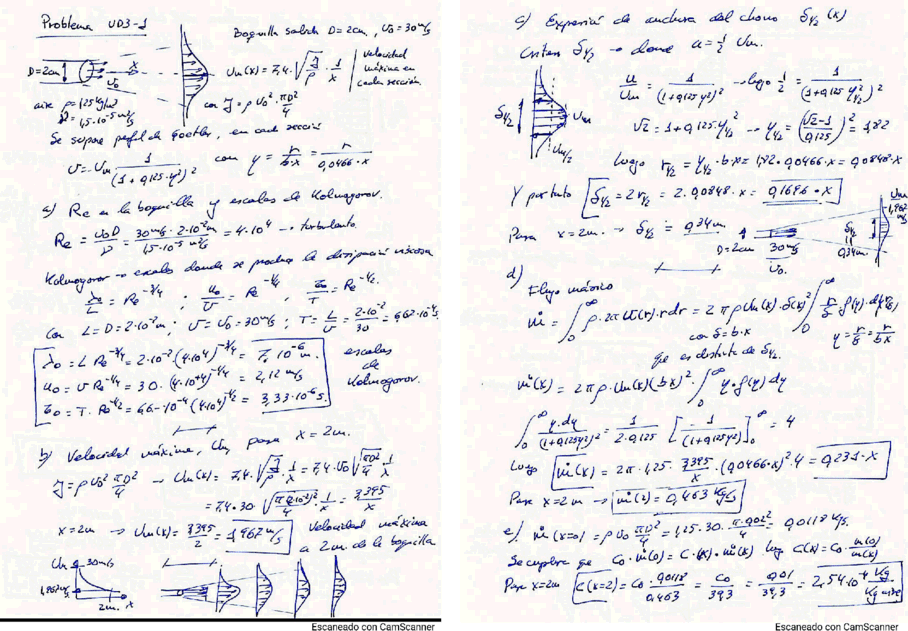 Problema UD3-1
Boquilla salida D=2cm, U₀=30m/s
D=2cm
U₀
x
Um(x)=7,4·√(J/ρ)·1/x
velocidad máxima en cada sección
aire ρ=1,25 kg/m³
ν=1,5·10⁻⁵ m²/s
con J=ρU₀²·πD²/4
Se supone perfil de Goertler, en cada sección
U=Um 1/(1+0,125·η²)² con η=r/(b·x)=r/(0,0466·x)
a) Re en la boquilla y escalas de Kolmogorov.
Re=U₀D/ν=30m/s·2·10⁻²m/(1,5·10⁻⁵ m²/s)=4·10⁴ → turbulento.
Kolmogorov → escalas donde se produce la disipación viscosa
λ₀/L=Re^-3/4 ; u₀/U=Re^-1/4 ; τ₀/T=Re^-1/2
con L=D=2·10⁻²m; U=U₀=30m/s; T=L/U=2·10⁻²/30=6,67·10⁻⁴s
λ₀=L Re^-3/4=2·10⁻²·(4·10⁴)^-3/4=7·10⁻⁶m.
u₀=U Re^-1/4=30·(4·10⁴)^-1/4=2,12m/s
τ₀=T·Re^-1/2=6,6·10⁻⁴(4·10⁴)^-1/2=3,33·10⁻⁶s.
escalas de Kolmogorov.
b) Velocidad máxima, Um para x=2m.
J=ρU₀²πD²/4 → Um(x)=7,4·√(J/ρ)·1/x=7,4·U₀√(πD²/4)·1/x
=7,4·30·√(π(2·10⁻²)²/4)·1/x=3,935/x
x=2m → Um(x)=3,935/2=1,967m/s
Velocidad máxima a 2m de la boquilla
Um
30m/s
1,967m/s
2m.
x
Escaneado con CamScanner
c) Expresión de anchura del chorro δ½(x)
Criterio δ½ → donde u=½Um.
δ½
Um
Um/2
u/Um=1/(1+0,125η²)² → luego ½=1/(1+0,125η½²)²
√2=1+0,125η½² → η½=((√2-1)/0,125)^½=1,82
Luego r½=η½·b·x=1,82·0,0466·x=0,0848·x
Y por tanto δ½=2r½=2·0,0848·x=0,1696·x
Para x=2m. → δ½=0,34m.
D=2cm
30m/s
U₀.
δ½
0,34m.
Um
1,967 m/s
d) Flujo másico
ṁ=∫₀^∞ρ·2πU(r)·rdr=2πρUm(x)·δ(x)²∫₀^∞ r/δ f(η)d(r/δ)
con δ=b·x
que es distinta de δ½.
η=r/δ=r/bx
ṁ(x)=2πρ·Um(x)(bx)²·∫₀^∞η·f(η)dη
∫₀^∞ η·dη/(1+0,125η²)²=1/(2·0,125)[-1/(1+0,125η²)]₀^∞=4
Luego ṁ(x)=2π·1,25·3,935/x·(0,0466·x)²·4=0,231·x
Para x=2m → ṁ(2)=0,463 kg/s
e) ṁ(x=0)=ρU₀πD²/4=1,25·30·π·0,02²/4=0,0118 kg/s.
Se cumple que C₀·ṁ(0)=C·(x)·ṁ(x) luego C(x)=C₀·ṁ(0)/ṁ(x)
Para x=2m C(x=2)=C₀·0,0118/0,463=C₀/39,3=0,01/39,3=2,54·10⁻⁴ kg/kg aire
Escaneado con CamScanner